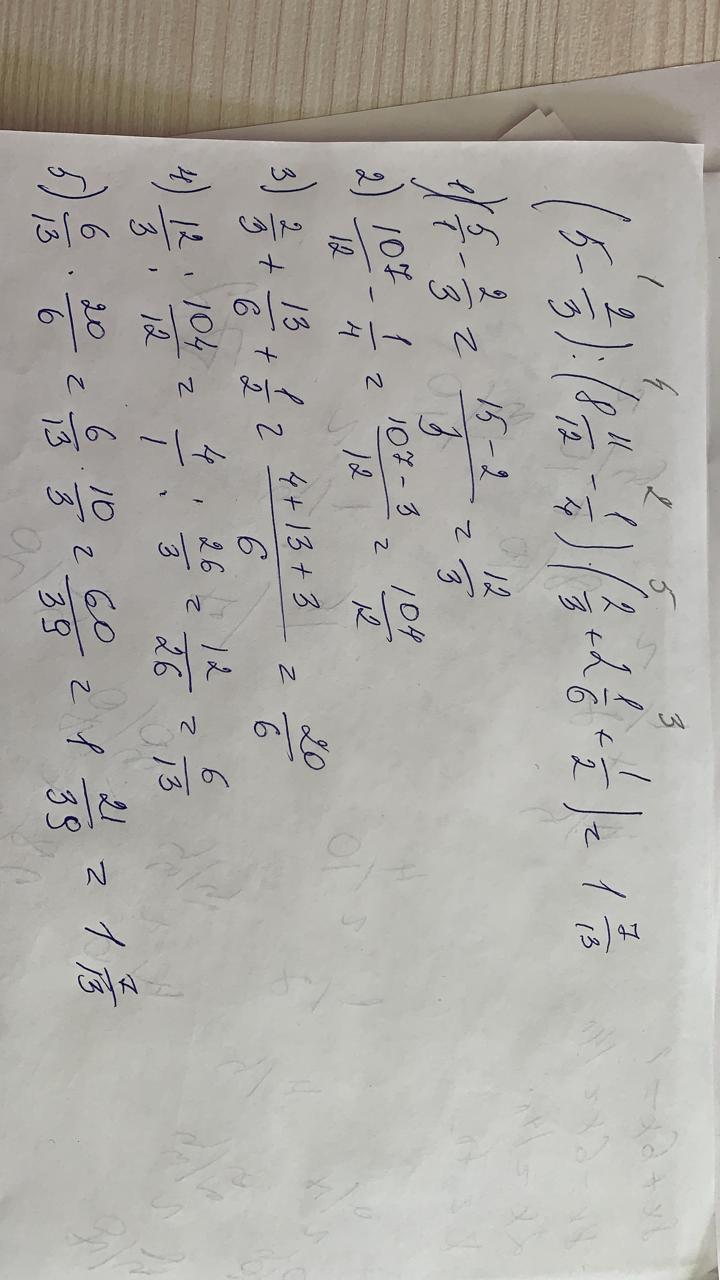 1 4 2 5 3
(5 - 2/3) : (8 11/12 - 1/4) · (2/3 + 2 1/6 + 1/2) = 1 7/13
1) 5/1 - 2/3 = 15-2/3 = 12/3
2) 107/12 - 1/4 = 107-3/12 = 104/12
3) 2/3 + 13/6 + 1/2 = 4+13+3/6 = 20/6
4) 12/3 : 104/12 = 4/1 : 26/3 = 12/26 = 6/13
5) 6/13 · 20/6 = 6/13 · 10/3 = 60/39 = 1 21/39 = 1 7/13